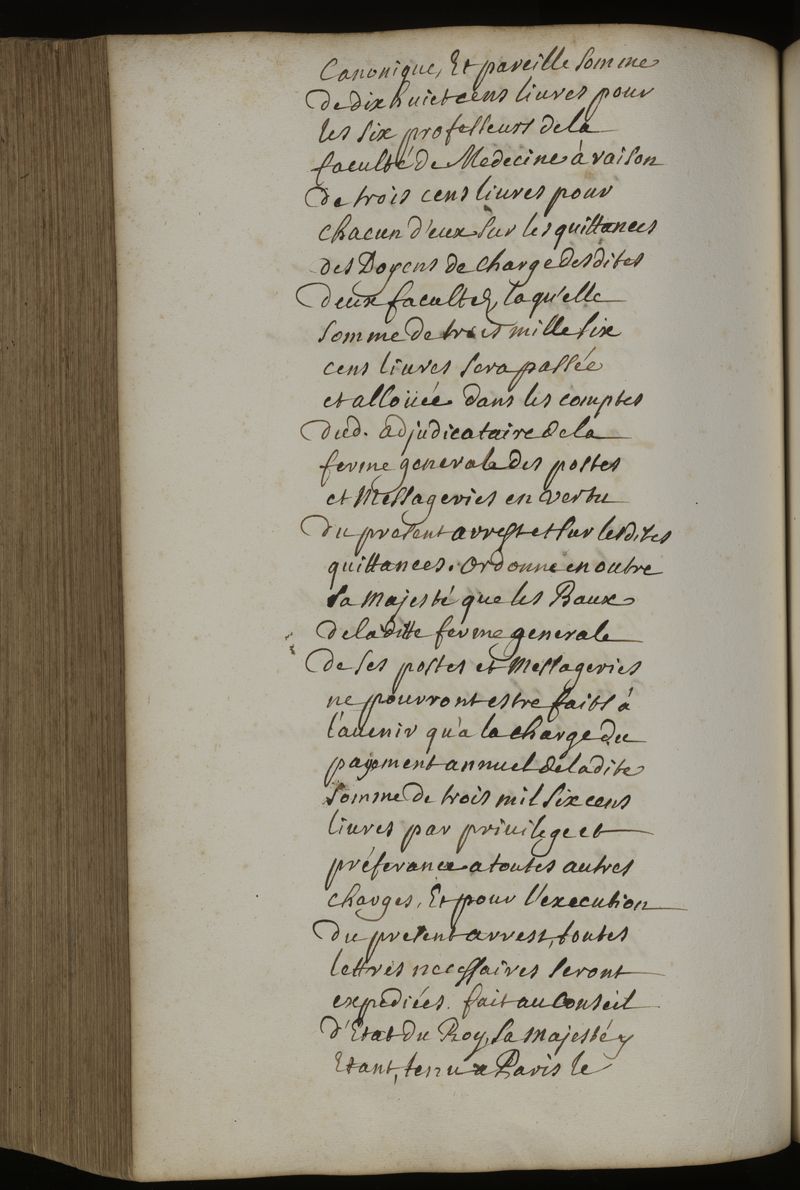 Canonique, Et pareille Somme
de dix huict cens liures pour
les six professeurs de la
faculté de Medecine à raison
de trois cens liures pour
chacun d'eux sur les quittances
des Doyens de charge desdites
deux facultez, laqu'elle
somme de trois mille six
cens liures sera passée
et alloüée dans les comptes
dud. adjudicataire de la
ferme generale des postes
et Messageries en vertu
du present arrest et sur lesdites
quittances. Ordonne en outre
sa Majesté que les Baux
de la ditte ferme generale
de ses postes et Messageries
ne pourront estre faits à
l'auenir qu'a la charge du
payement annuel de ladite
somme de trois mil six cens
liures par priuilege et
préferance a toutes autres
charges, Et pour l'execution
du present arrest, toutes
lettres necessaires seront
expediées. fait au Conseil
d'Etat du Roy, sa Majesté y
Etant, tenu a Paris le